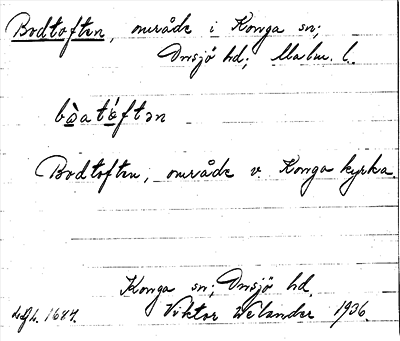 Bodtoften, område i Konga sn;
Onsjö hd; Malm. l.
bòatóftən
Bodtoften, område v. Konga kyrka.
Konga sn; Onsjö hd.
Viktor Welander 1936.
1687.